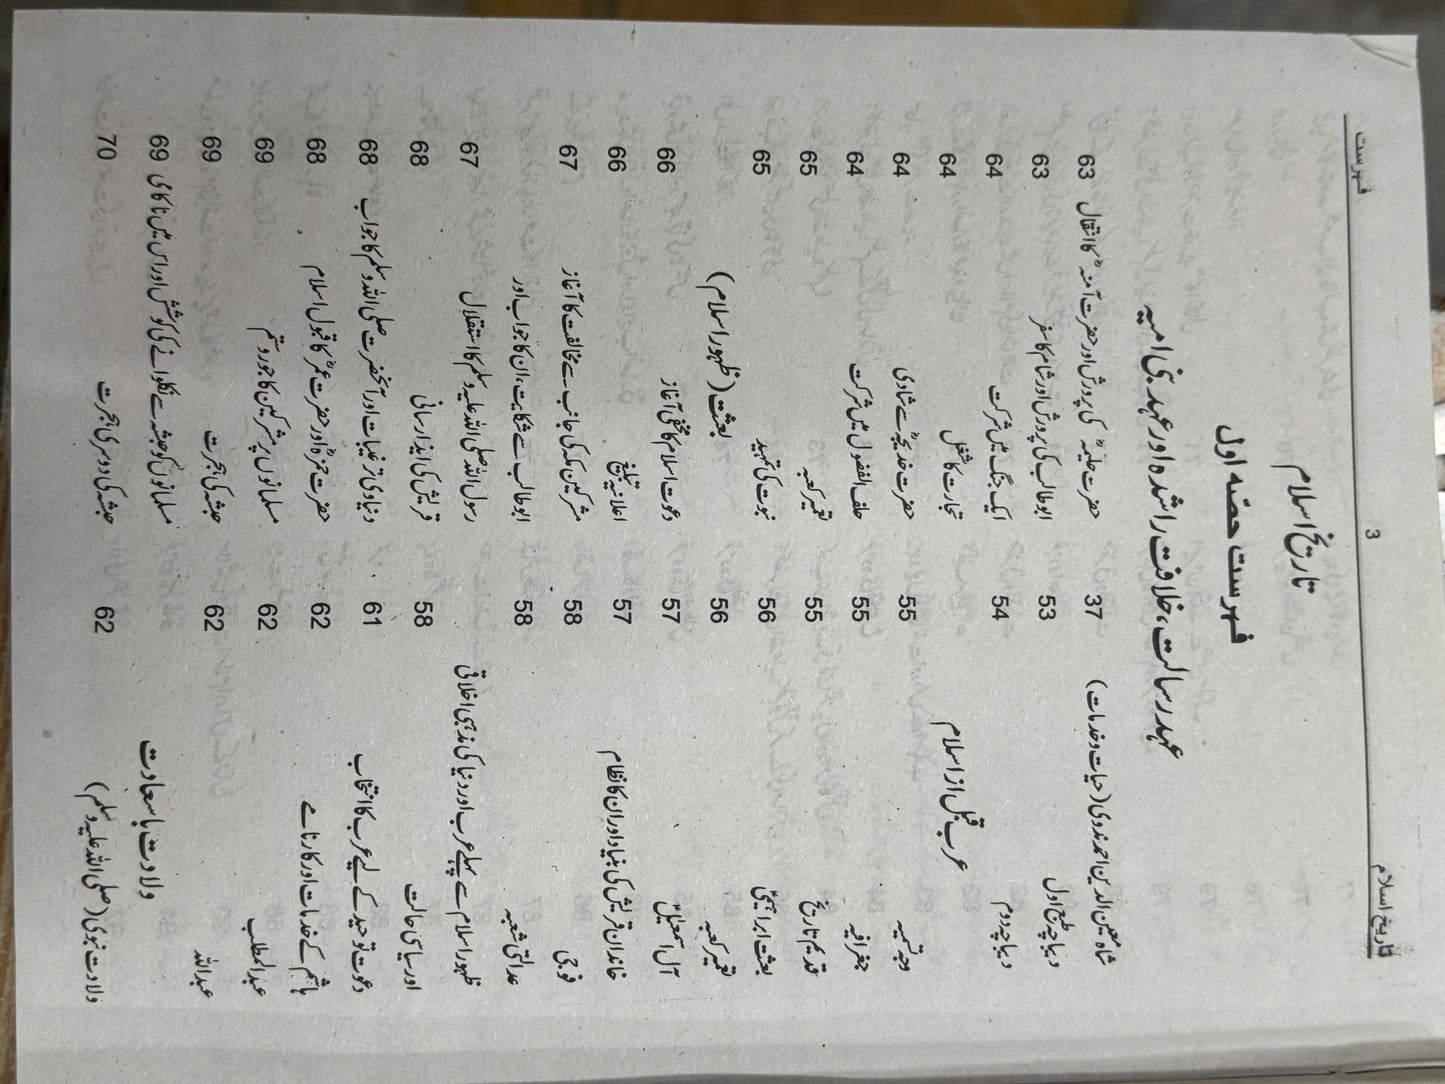 تاریخ اسلام 3 فہرست
تاریخ اسلام
فہرست حصّہ اول
عہد رسالت، خلافت راشدہ اور عہد بنی امیہ
شاہ معین الدین احمد ندوی (حیات و خدمات) 37
دیباچہ طبع اول 53
دیباچہ دوم 54
عرب قبل از اسلام
وجہ تسمیہ 55
جغرافیہ 55
قدیم تاریخ 55
بعثت ابراہیمیؑ 56
تعمیر کعبہ 56
آل اسمعیلؑ 57
خاندان قریش کی بنیاد اور ان کا نظام 57
فوجی 58
عدالتی شعبہ 58
ظہور اسلام سے پہلے عرب اور دنیا کی مذہبی اخلاقی
اور سیاسی حالت 58
دعوت توحید کے لیے عرب کا انتخاب 61
ہاشم کے خدمات اور کارنامے 62
عبدالمطلب 62
عبداللہ 62
ولادت باسعادت
ولادت نبوی (صلی اللہ علیہ وسلم) 62
حضرت حلیمہؓ کی پرورش اور حضرت آمنہؓ کا انتقال 63
ابوطالب کی پرورش اور شام کا سفر 63
ایک جنگ میں شرکت 64
تجارت کا شغل 64
حضرت خدیجہؓ سے شادی 64
حلف الفضول میں شرکت 64
تعمیر کعبہ 65
نبوت کی تمہید 65
بعثت (ظہور اسلام)
دعوت اسلام کا مخفی آغاز 66
اعلانیہ تبلیغ 66
مشرکین مکہ کی جانب سے مخالفت کا آغاز 67
ابوطالب سے شکایت، ان کا جواب اور
رسول اللہ صلی اللہ علیہ وسلم کا استقلال 67
قریش کی ایذا رسانی 68
دنیاوی ترغیبات اور آنحضرت صلی اللہ وسلم کا جواب 68
حضرت حمزہؓ اور حضرت عمرؓ کا قبول اسلام 68
مسلمانوں پر مشرکین کا جور و ستم 69
حبشہ کی ہجرت 69
مسلمانوں کو حبشہ سے نکلوانے کی کوشش اور اس میں ناکامی 69
حبشہ کی دوسری ہجرت 70